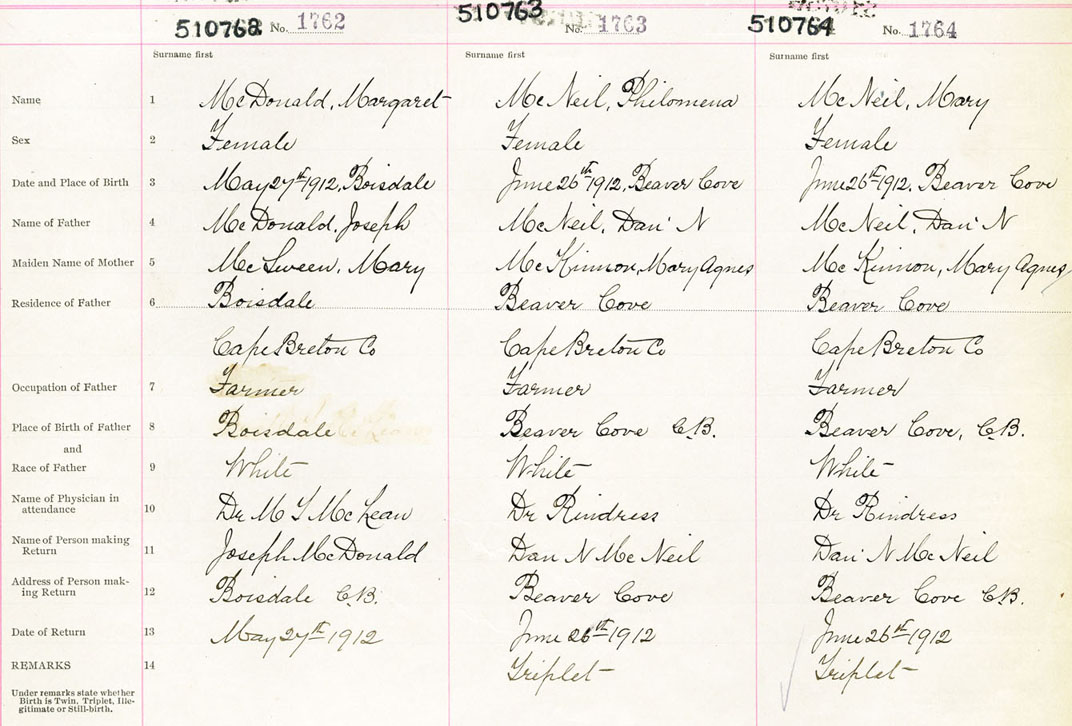 510762 No. 1762 510763 No. 1763 510764 No. 1764
Surname first Surname first Surname first
Name 1 McDonald, Margaret McNeil, Philomena McNeil, Mary
Sex 2 Female Female Female
Date and Place of Birth 3 May 27th 1912, Boisdale June 26th 1912, Beaver Cove June 26th 1912, Beaver Cove
Name of Father 4 McDonald, Joseph McNeil, Dan' N McNeil, Dan' N
Maiden Name of Mother 5 McSween, Mary McKinnon, Mary Agnes McKinnon, Mary Agnes
Residence of Father 6 Boisdale Beaver Cove Beaver Cove
Cape Breton Co Cape Breton Co Cape Breton Co
Occupation of Father 7 Farmer Farmer Farmer
Place of Birth of Father 8 Boisdale Beaver Cove C.B. Beaver Cove, C.B.
and
Race of Father 9 White White White
Name of Physician in
attendance 10 Dr M S McLean Dr Kindress Dr Kindress
Name of Person making
Return 11 Joseph McDonald Dan N McNeil Dan' N McNeil
Address of Person mak-
ing Return 12 Boisdale C.B. Beaver Cove Beaver Cove C.B.
Date of Return 13 May 27th 1912 June 26th 1912 June 26th 1912
REMARKS 14 Triplet Triplet
Under remarks state whether
Birth is Twin, Triplet, Ille-
gitimate or Still-birth.